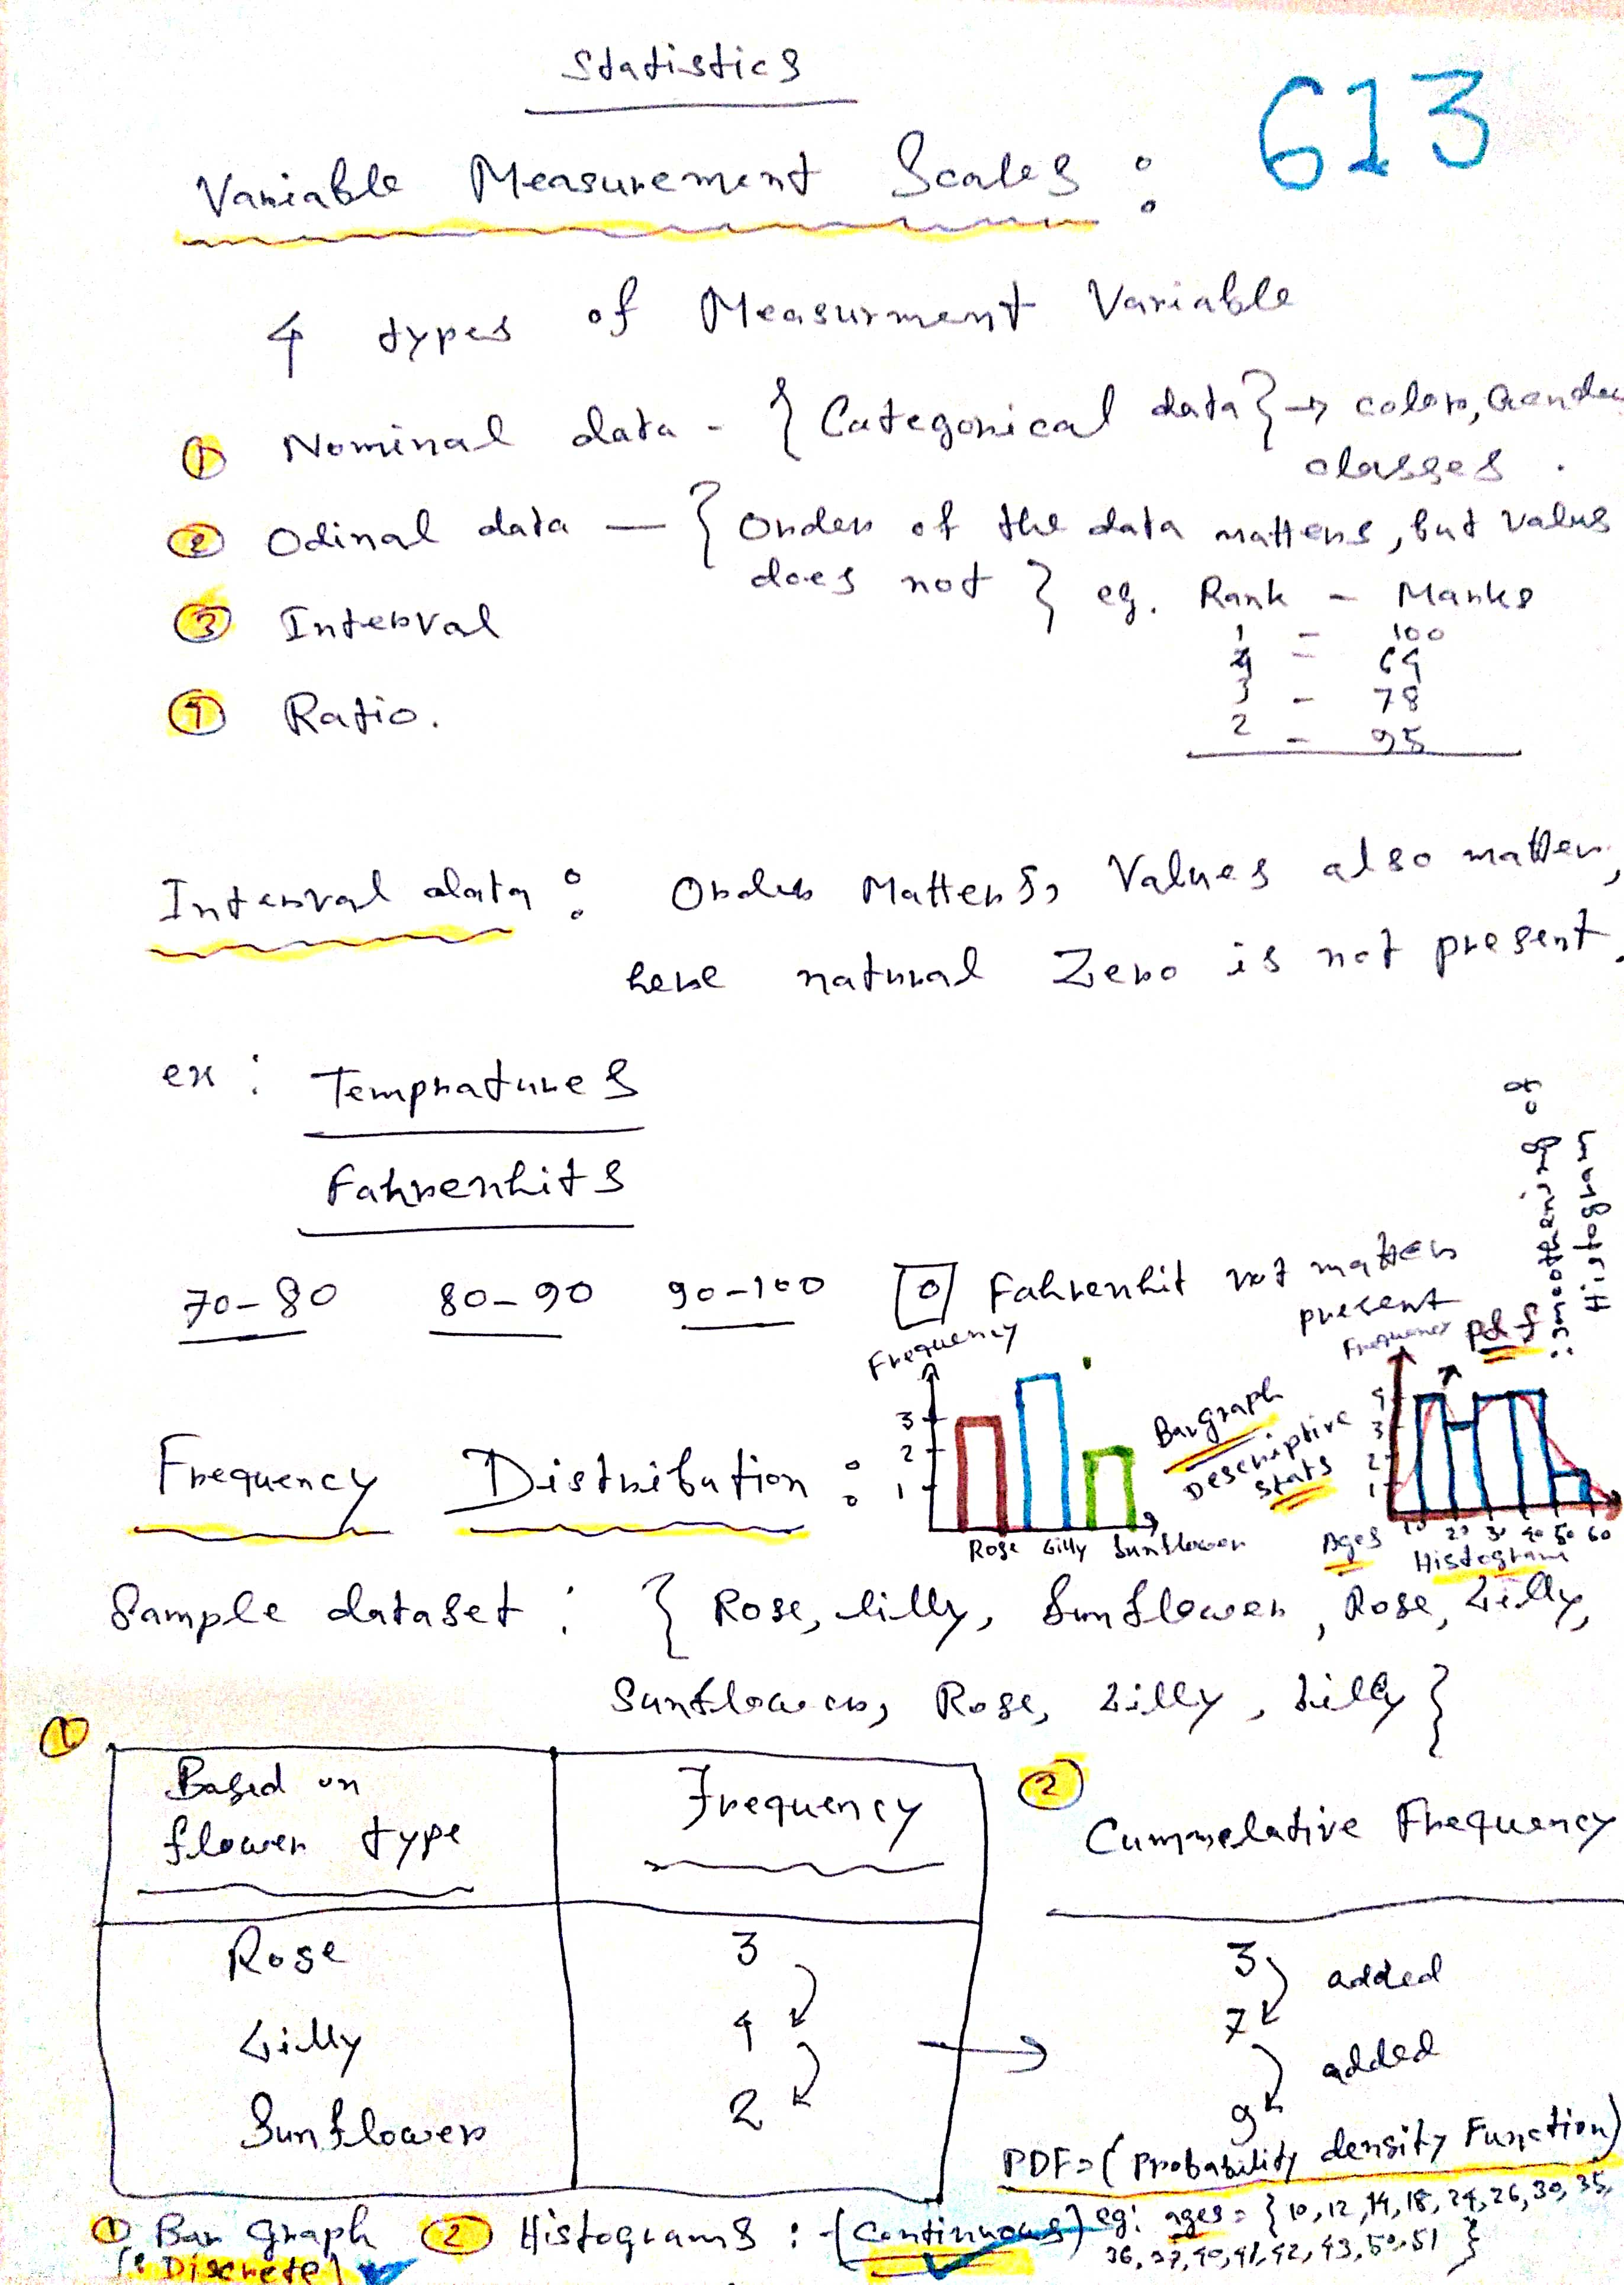 Statistics
613
Variable Measurement Scales :
4 types of Measurment Variable
① Nominal data - { Categorical data } → colors, Gender
classes .
② Odinal data — { Order of the data matters, but values
does not } eg. Rank - Marks
1 - 100
4 - 64
3 - 78
2 - 95
③ Interval
④ Ratio.
Interval data : Order Matters, Values also matter,
here natural Zero is not present.
ex : Tempratures
Fahrenhits
70-80 80-90 90-100 0 Fahrenhit not matters
present
Frequency
3
2
1
Rose Lilly Sunflower
Bar graph
Descriptive
Stats
Frequency
pdf
: smoothening of
Histogram
4
3
2
1
Ages 10 20 30 40 50 60
Histogram
Frequency Distribution :
Sample dataset : { Rose, lilly, Sunflower, Rose, Lilly,
Sunflower, Rose, Lilly, Lilly }
①
Based on Frequency
flower type
Rose 3
Lilly 4
Sunflower 2
②
Cummelative Frequency
3 added
7
added
9
PDF = (Probability density Function)
① Bar Graph ② Histograms : - (Continuous) eg: ages = { 10, 12, 14, 18, 24, 26, 30, 35,
36, 37, 40, 41, 42, 43, 50, 51 }
(: Discrete)